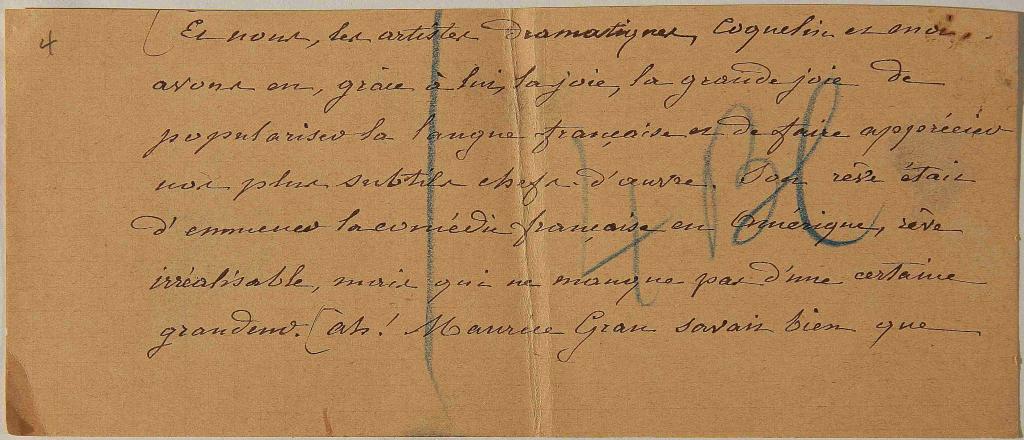 4
[Et nous, les artistes dramatiques, Coquelin et moi
avons eu, grâce à lui, la joie, la grande joie de
populariser la langue française et de faire apprécier
nos plus subtils chefs-d'œuvre. Son rêve était
d'emmener la comédie française en Amérique, rêve
irréalisable, mais qui ne manque pas d'une certaine
grandeur. [ah! Maurice Grau savait bien que